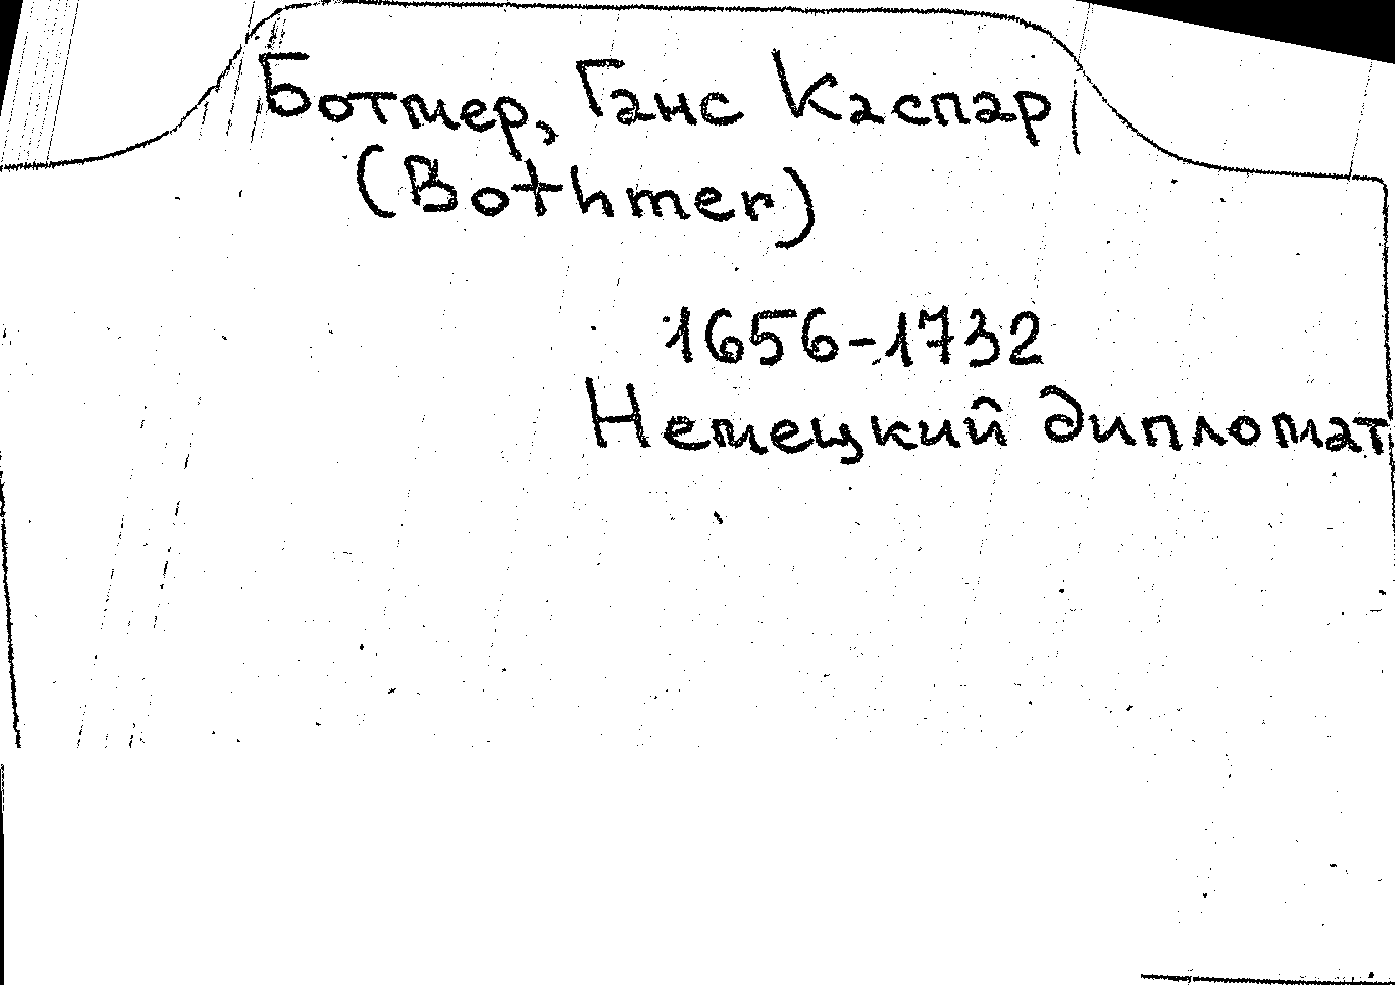 Ботмер, Ганс Каспар
(Bothmer)
1656-1732
Немецкий дипломат